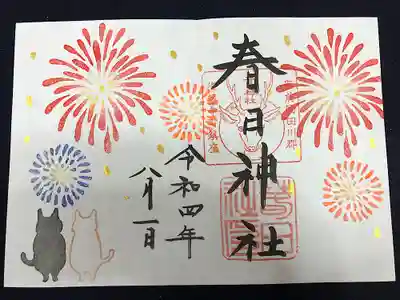 春日神社
令和四年
八月一日